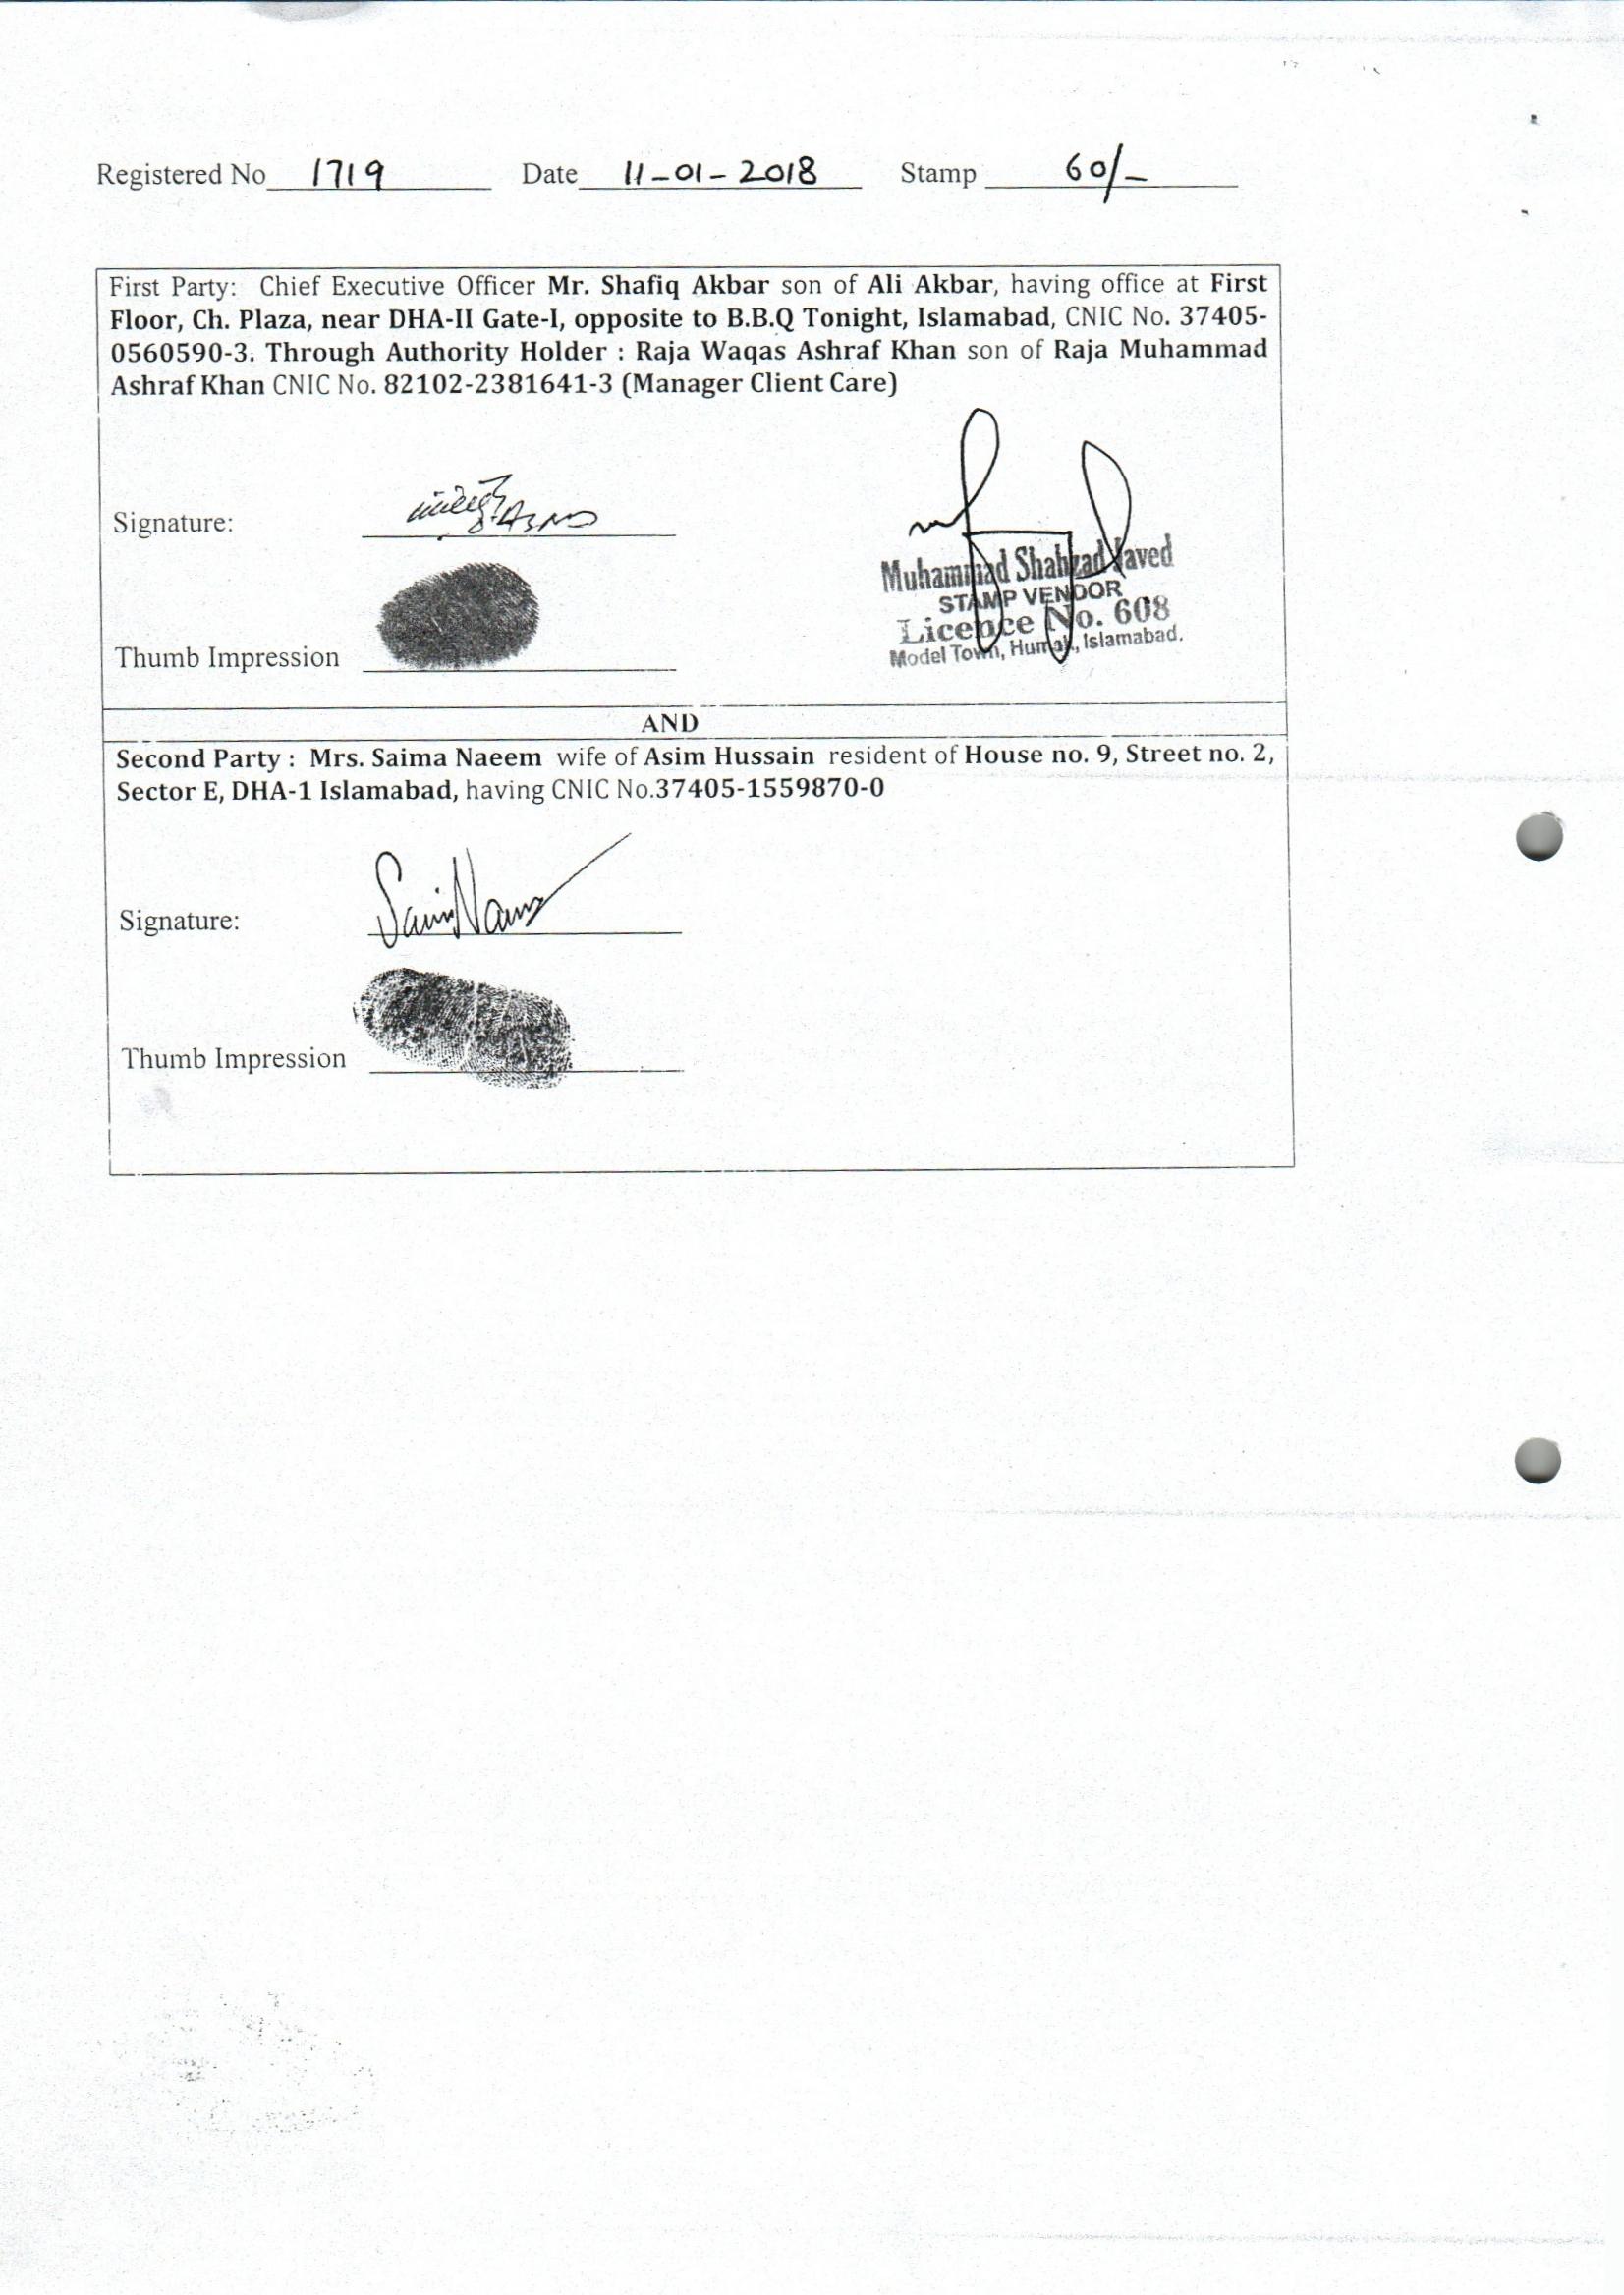 Registered No 1719 Date 11-01-2018 Stamp 60/-
First Party: Chief Executive Officer Mr. Shafiq Akbar son of Ali Akbar, having office at First
Floor, Ch. Plaza, near DHA-II Gate-I, opposite to B.B.Q Tonight, Islamabad, CNIC No. 37405-
0560590-3. Through Authority Holder : Raja Waqas Ashraf Khan son of Raja Muhammad
Ashraf Khan CNIC No. 82102-2381641-3 (Manager Client Care)
Signature:
Muhammad Shahzad Javed
STAMP VENDOR
Licence No. 608
Model Town, Humak, Islamabad.
Thumb Impression
AND
Second Party : Mrs. Saima Naeem wife of Asim Hussain resident of House no. 9, Street no. 2,
Sector E, DHA-1 Islamabad, having CNIC No.37405-1559870-0
Signature:
Thumb Impression